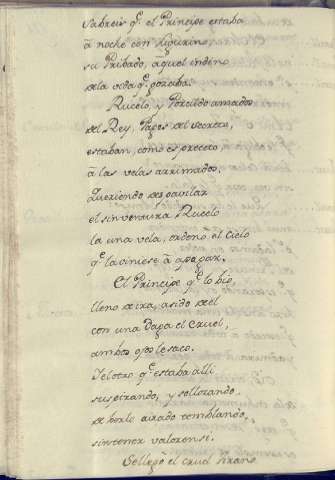 Sabreis q.e el Principe estaba
â noche con Ligurino
su Pribado, âquel indino
de la vida q.e gozaba.
Rucelo, y Porcildo amados
del Rey, Pages del Secreto,
estaban, como es preceto
â las velas arrimados.
Queriendo despavilar
el sin ventura Rucelo
la una vela, ordenó el Cielo
q.e la viniese â apagar.
El Principe q.e lo bió,
lleno de ira, asido de él
con una Daga el Cruel,
ambos ojos le saco.
Y el otro q.e estaba alli
suspirando, y sollozando
de berlo airado temblando,
sin tener valor en sí.
Se llegó el cruel tirano